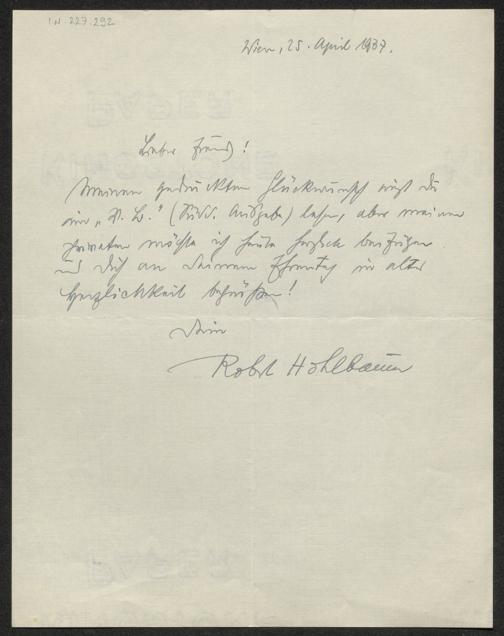 I.N. 227.292
Wien, 25. April 1937.
Lieber Freund!
Meinen gedruckten Glückwunsch wirst du
im „V. B." (Südd. Ausgabe) lesen, aber meinen
privaten möchte ich heute herzlich beifügen
und Dich an Deinem Ehrentag in alter
Herzlichkeit begrüßen!
Dein
Robert Hohlbaum